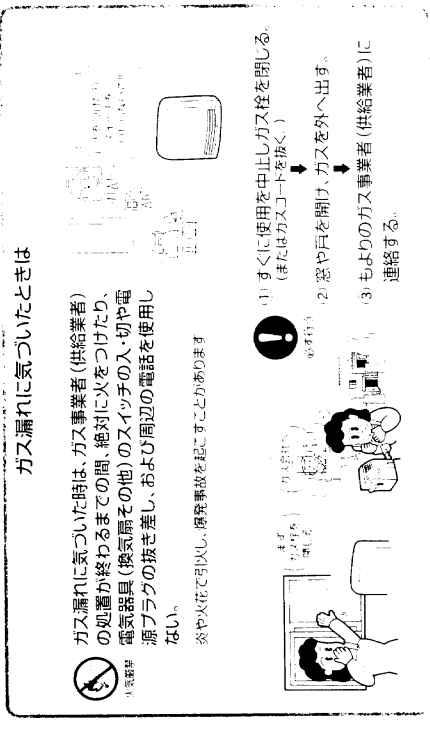 ガス漏れに気づいたときは
ガス漏れに気づいた時は、ガス事業者(供給業者)
の処置が終わるまでの間、絶対に火をつけたり、
電気器具(換気扇その他)のスイッチの入・切や電
源プラグの抜き差し、および周辺の電話を使用し
ない。
火気厳禁
炎や火花で引火し、爆発事故を起こすことがあります
必ず行う
(1) すぐに使用を中止しガス栓を閉じる。
(またはガスコードを抜く。)
(2) 窓や戸を開け、ガスを外へ出す。
(3) もよりのガス事業者(供給業者)に
連絡する。
まず
ガス栓を
閉じる